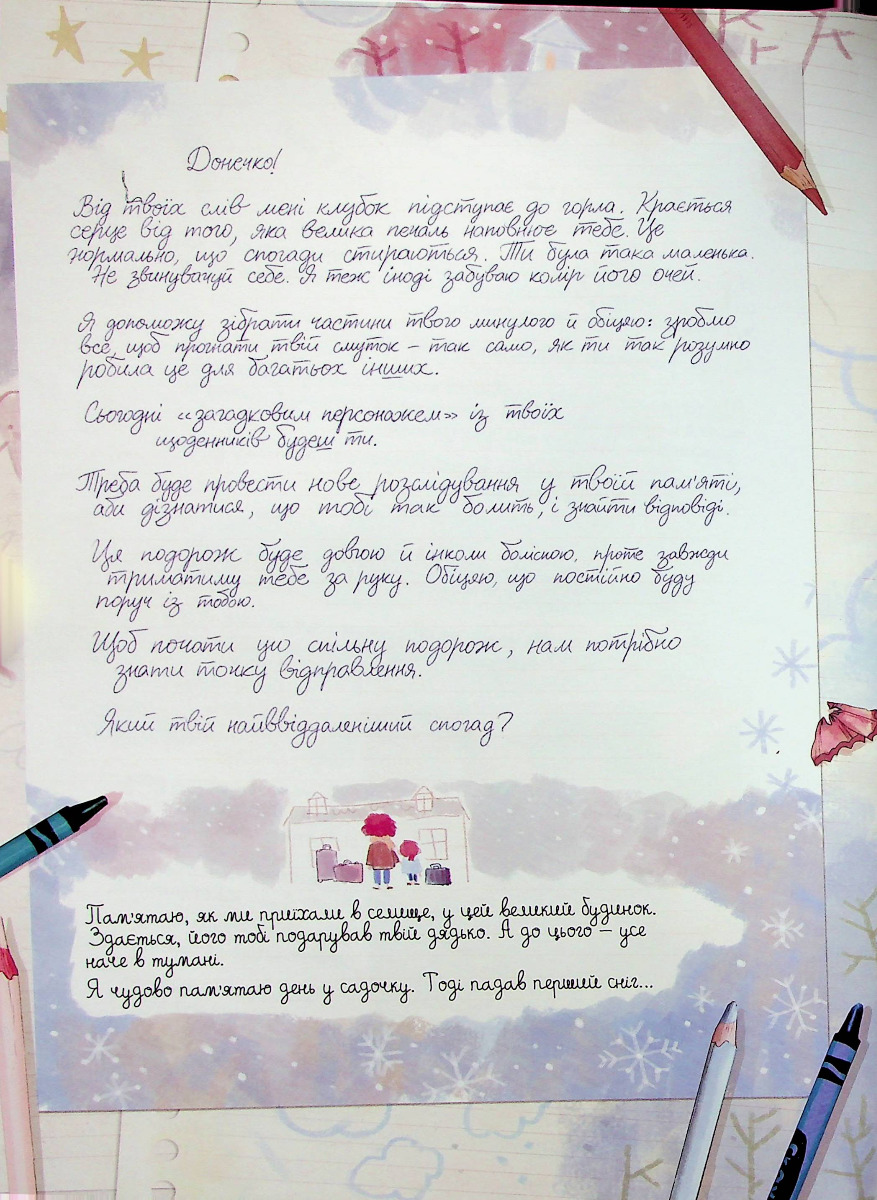 Донечко!
Від твоїх слів мені клубок підступає до горла. Крається
серце від того, яка велика печаль наповнює тебе. Це
нормально, що спогади стираються. Ти була така маленька.
Не звинувачуй себе. Я теж іноді забуваю колір його очей.
Я допоможу зібрати частини твого минулого й обіцяю: зроблю
все, щоб прогнати твій смуток – так само, як ти так розумно
робила це для багатьох інших.
Сьогодні «загадковим персонажем» із твоїх
щоденників будеш ти.
Треба буде провести нове розслідування у твоїй пам'яті,
аби дізнатися, що тобі так болить, і знайти відповіді.
Ця подорож буде довгою й інколи болісною, проте завжди
триматиму тебе за руку. Обіцяю, що постійно буду
поруч із тобою.
Щоб почати цю спільну подорож, нам потрібно
знати точку відправлення.
Який твій найввіддаленіший спогад?
Пам'ятаю, як ми приїхали в селище, у цей великий будинок.
Здається, його тобі подарував твій дядько. А до цього – усе
наче в тумані.
Я чудово пам'ятаю день у садочку. Тоді падав перший сніг...